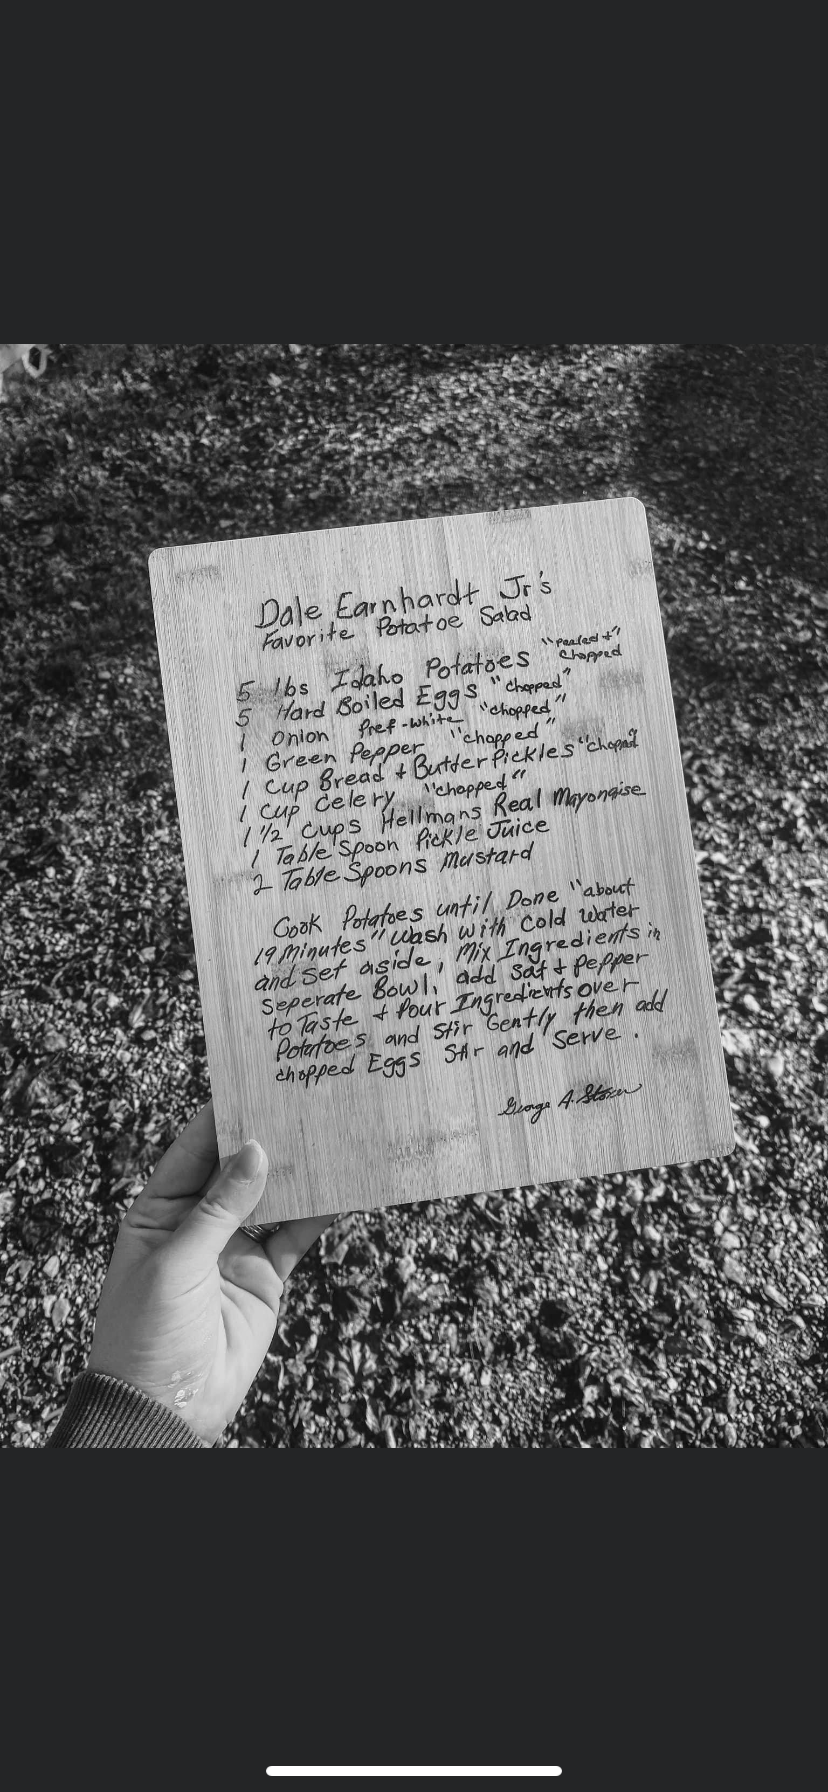 Dale Earnhardt Jr's
Favorite Potatoe Salad
5 lbs Idaho Potatoes "pealed + chopped"
5 Hard Boiled Eggs "chopped"
1 Onion Pref-white "chopped"
1 Green Pepper "chopped"
1 Cup Bread + Butter Pickles "chopped"
1 Cup Celery "chopped"
1 1/2 Cups Hellmans Real Mayonaise
1 Table Spoon Pickle Juice
2 Table Spoons Mustard
Cook Potatoes until Done "about
19 Minutes" Wash with Cold Water
and set aside, Mix Ingredients in
seperate Bowl, add Salt + Pepper
to Taste + Pour Ingredients over
Potatoes and Stir Gently then add
chopped Eggs Stir and Serve.
George A.